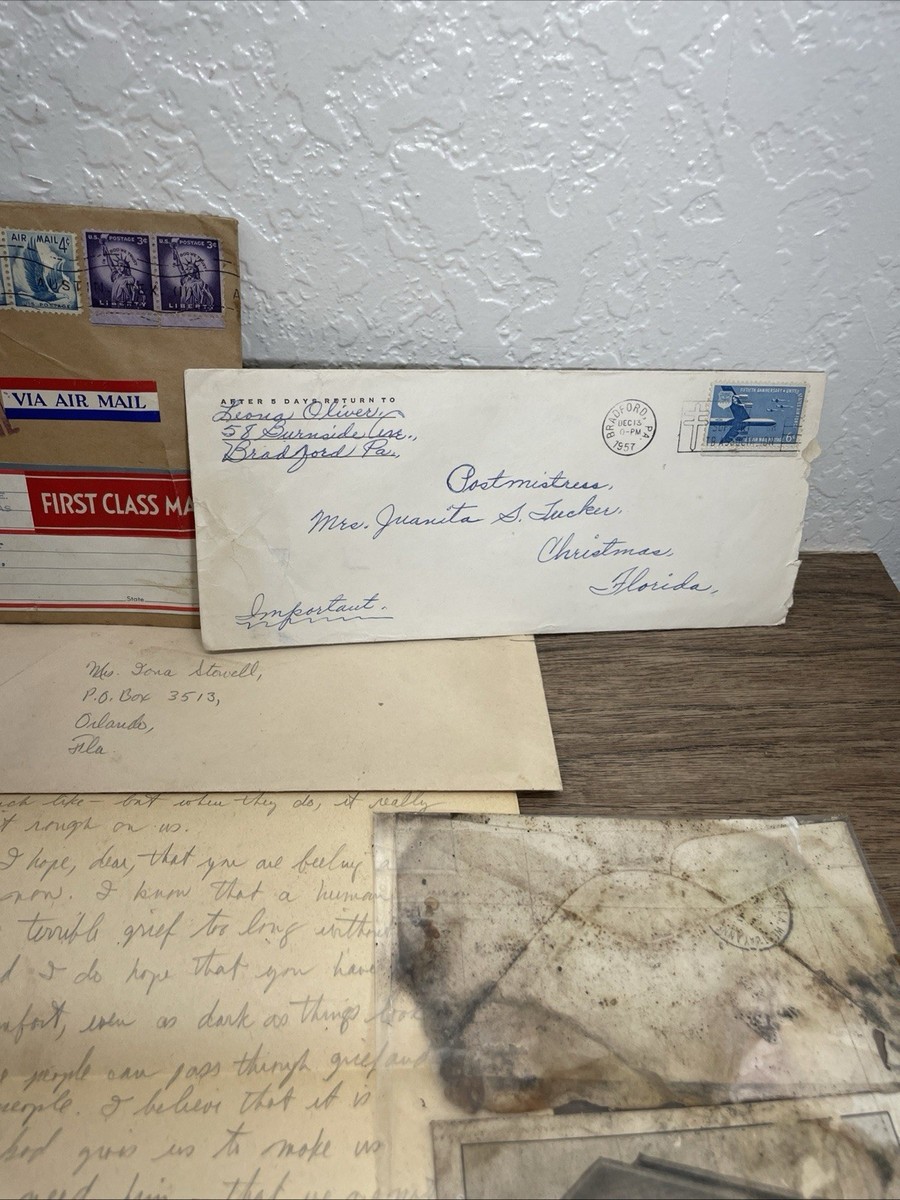 AIR MAIL 4¢
U.S. POSTAGE 3¢
U.S. POSTAGE 3¢
AUSTIN
LIBERTY
LIBERTY
VIA AIR MAIL
FIRST CLASS MA
State
AFTER 5 DAYS RETURN TO
Leona Oliver,
58 Burnside Ave.,
Bradford Pa.,
BRADFORD, PA
DEC 13
-PM
1957
6¢
Postmistress,
Mrs. Juanita S. Tucker.
Christmas,
Florida,
Important.
Mrs. Iona Stowell,
P.O. Box 3513,
Orlando,
Fla
like — but when they do, it really
rough on us.
I hope, dear, that you are feeling
now. I know that a human
terrible grief too long without
I do hope that you have
even as dark as things look
people can pass through grief and
people. I believe that it is
God gives us to make us
need him that we